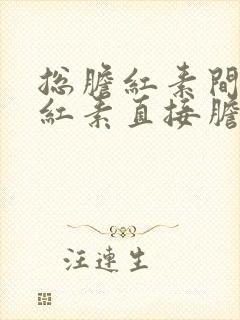 总膽紅素間
紅素直接膽
汪連生